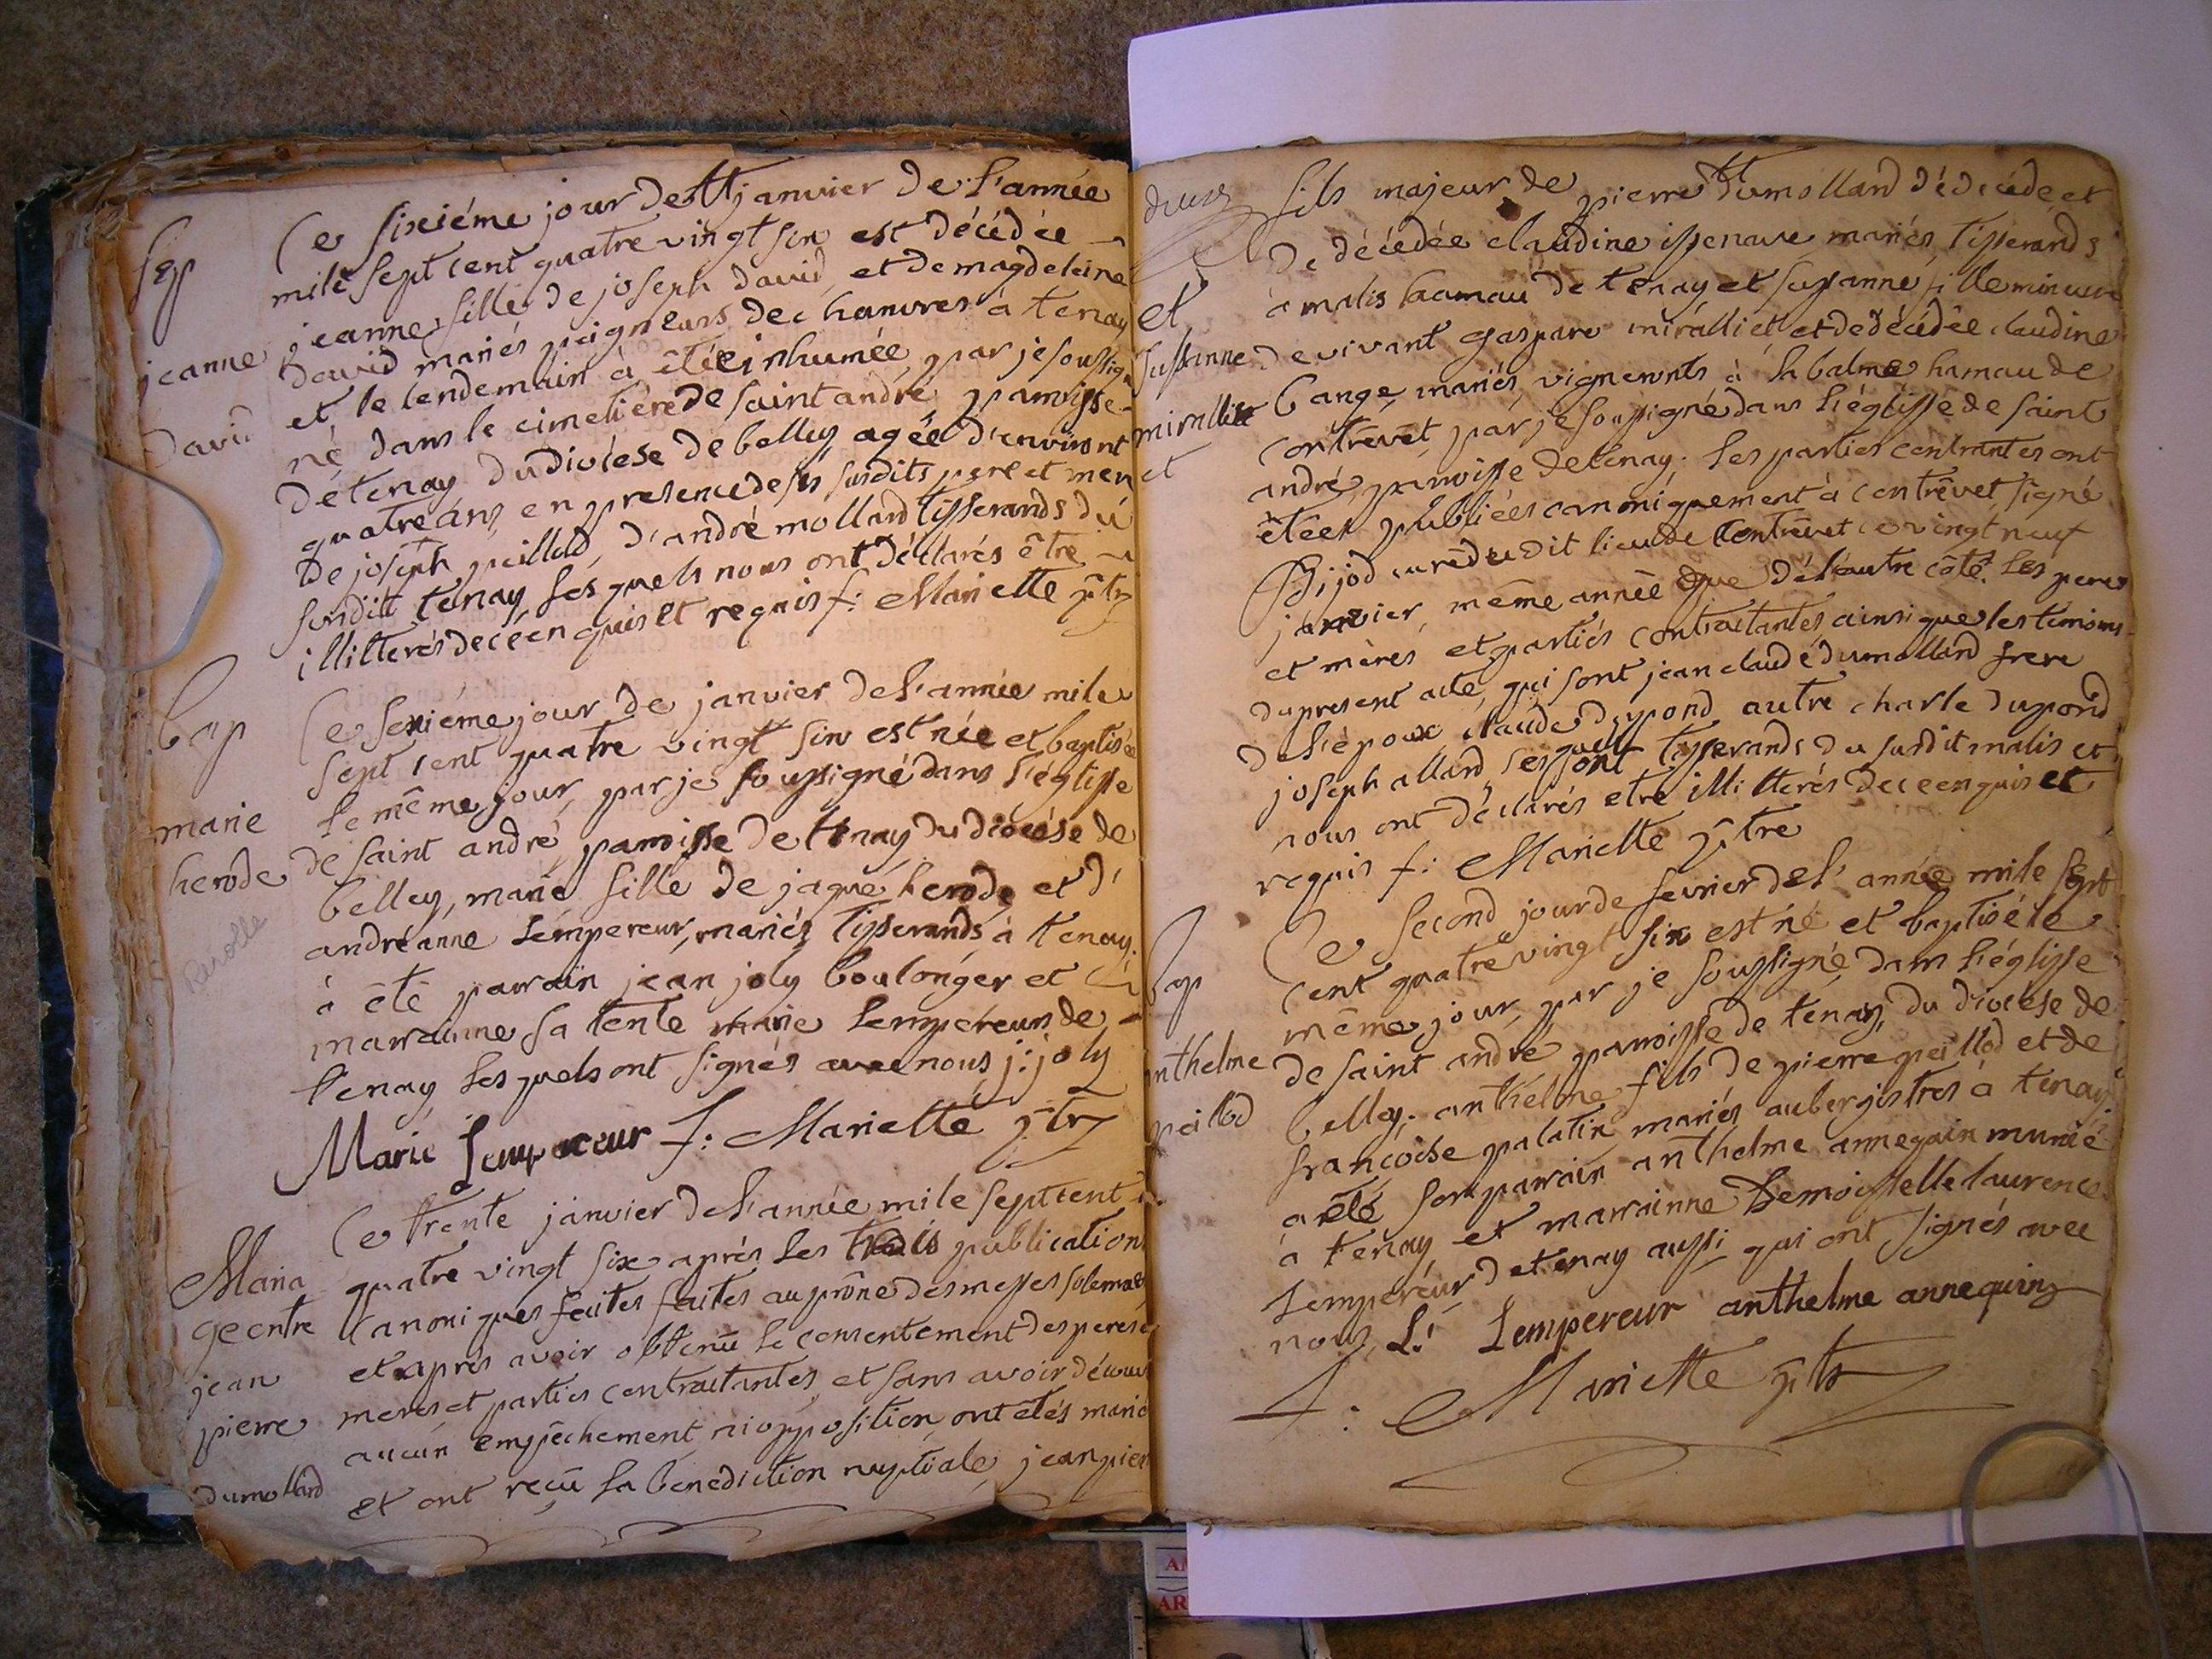 Sep
jeanne
david
Ce sixiéme jour de janvier de l'année
mile sept cent quatre vingt six est décédée
jeanne fille de joseph david et de magdeleine
david mariés peigneurs de chanvres à tenay
et le lendemain à êtée inhumée par je soussig
né dans le cimetiére de saint andré paroisse
de tenay du diocése de belley agée d'environt
quatre ans en presence de ses susdits pere et mere
de joseph peillod, d'andré mollard tisserands du
susdit tenay lesquels nous ont déclarés être
illitterés de ce enquis et requis f: Mariette p̃tr
bap
marie
herode
Ce sexiéme jour de janvier de l'année mile
sept cent quatre vingt six est née et baptisée
le même jour par je soussigné dans l'églisse
de saint andré paroisse de tenay du diocése de
belley, marie fille de jaque herode et d'
andréanne Lempereur, mariés tisserands à tenay
à êté parrain jean joly boulonger et
marrainne sa tente marie Lempereur de
tenay lesquels ont signés avec nous j: joly
Marie Lempereur f: Mariette p̃tr
Maria
ge entre
jean
pierre
dumollard
Ce trente janvier de l'année mile sept cent
quatre vingt six aprés les trois publications
canoniques faites faites au prône des messes solemn
et aprés avoir obtenû le consentement des peres
meres et parties contractantes et sans avoir découv
aucun empêchement ni opposition ont êtés marié
et ont reçû la bénédiction nuptiale jean pier
et
Susanne
miralliet
et
fils majeur de pierre dumollard décédé et
de décédée claudine issenave mariés tisserands
à malis hamau de tenay et susanne fille mineure
de vivant gaspare miralliet et de décédée claudine
bange mariés vignerons à la balme hamau de
contrêvêt par je soussigné dans l'églisse de saint
andré paroisse de tenay. les parties contrantes ont
êtées publiées canoniquement à contrêvet signé
Bijod curé du dit lieu de contrêvet ce vingt neuf
janvier même année que dé l'autre côté. les peres
et mères et parties contractantes ainsi que les temoins
du present acte, qui sont jean claude dumollard frere
de l'époux claude dupond autre charle dupond
joseph allard lesquels sont tisserands du susdit malis et
nous ont déclarés etre illitterés de ce enquis et
requis f: Mariette p̃tre
bap
anthelme
peillod
Ce second jour de fevrier de l'année mile sept
cent quatre vingt six est né et baptisé le
même jour par je soussigné dans l'églisse
de saint andré paroisse de tenay, du diocése de
belley, anthelme fils de pierre peillod et de
françoise palatin mariés aubergistres à tenay
à êté son parrain anthelme annequin munié
à tenay et marrainne Demoisselle laurence
Lempereur de tenay aussi qui ont signés avec
nous, L! Lempereur anthelme annequin
f: Mariette p̃tr